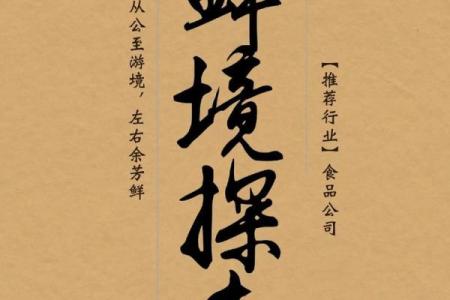 【推荐行业】食品公司
境探
从公至游境，左右余芳鲜